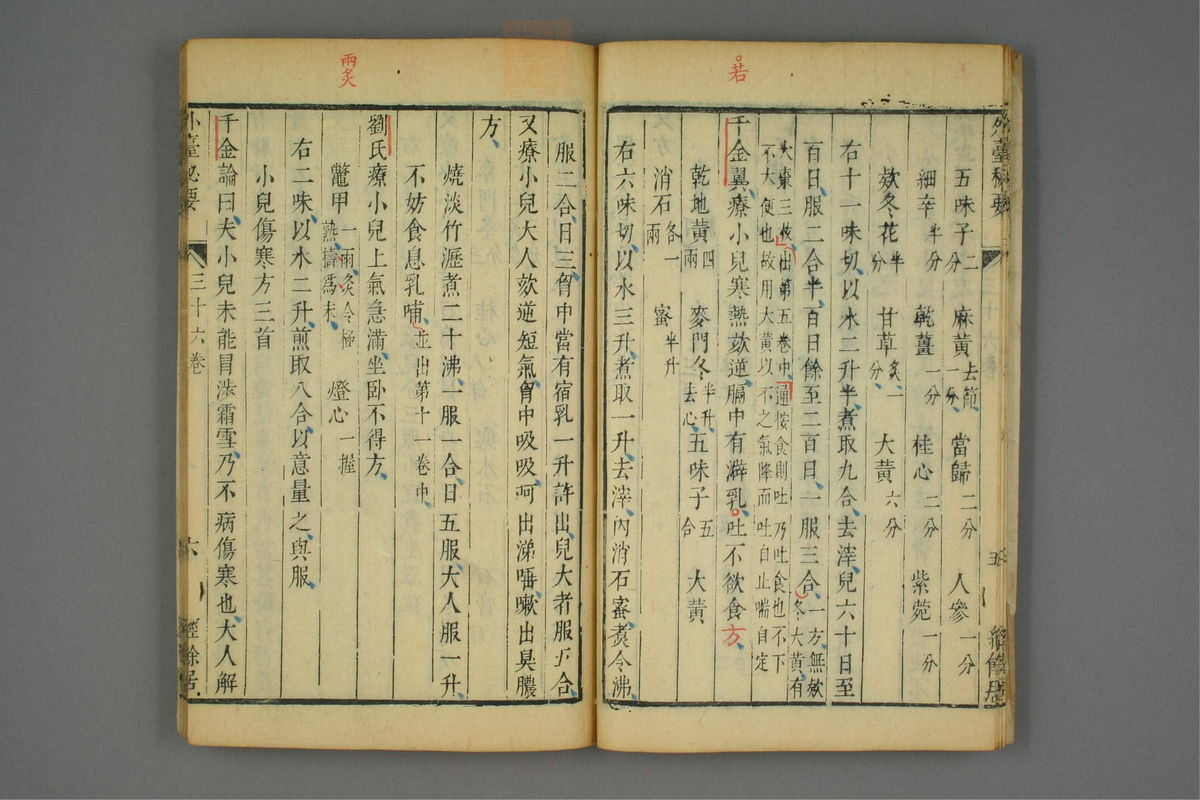 若
外臺秘要
五
經餘居
五味子二分 麻黃去節一分 當歸二分 人參一分
細辛半分 乾薑一分 桂心二分 紫菀一分
欬冬花半分 甘草炙一分 大黃六分
右十一味切以水二升半煮取九合去滓兒六十日至
百日服二合半百日餘至二百日一服三合一方無欬冬大黃有
大棗三枚出第五卷中通按食則吐乃吐食也不下
不大便也故用大黃以不之氣降而吐自止喘自定
千金翼療小兒寒熱欬逆膈中有澼乳吐不欲食方
乾地黃四兩 麥門冬半升去心 五味子五合 大黃
消石各一兩 蜜半升
右六味切以水三升煮取一升去滓內消石蜜煑令沸
兩炙
服二合日三胷中當有宿乳一升許出兒大者服五合
又療小兒大人欬逆短氣胷中吸吸呵出涕唾嗽出臭膿
方
燒淡竹瀝煮二十沸一服一合日五服大人服一升
不妨食息乳哺並出第十一卷中
劉氏療小兒上氣急滿坐卧不得方
鼈甲一兩炙令極熟擣爲末 燈心一握
右二味以水二升煎取八合以意量之與服
小兒傷寒方三首
千金論曰夫小兒未能冒涉霜雪乃不病傷寒也大人解
外臺祕要
三十六卷
六
經餘居